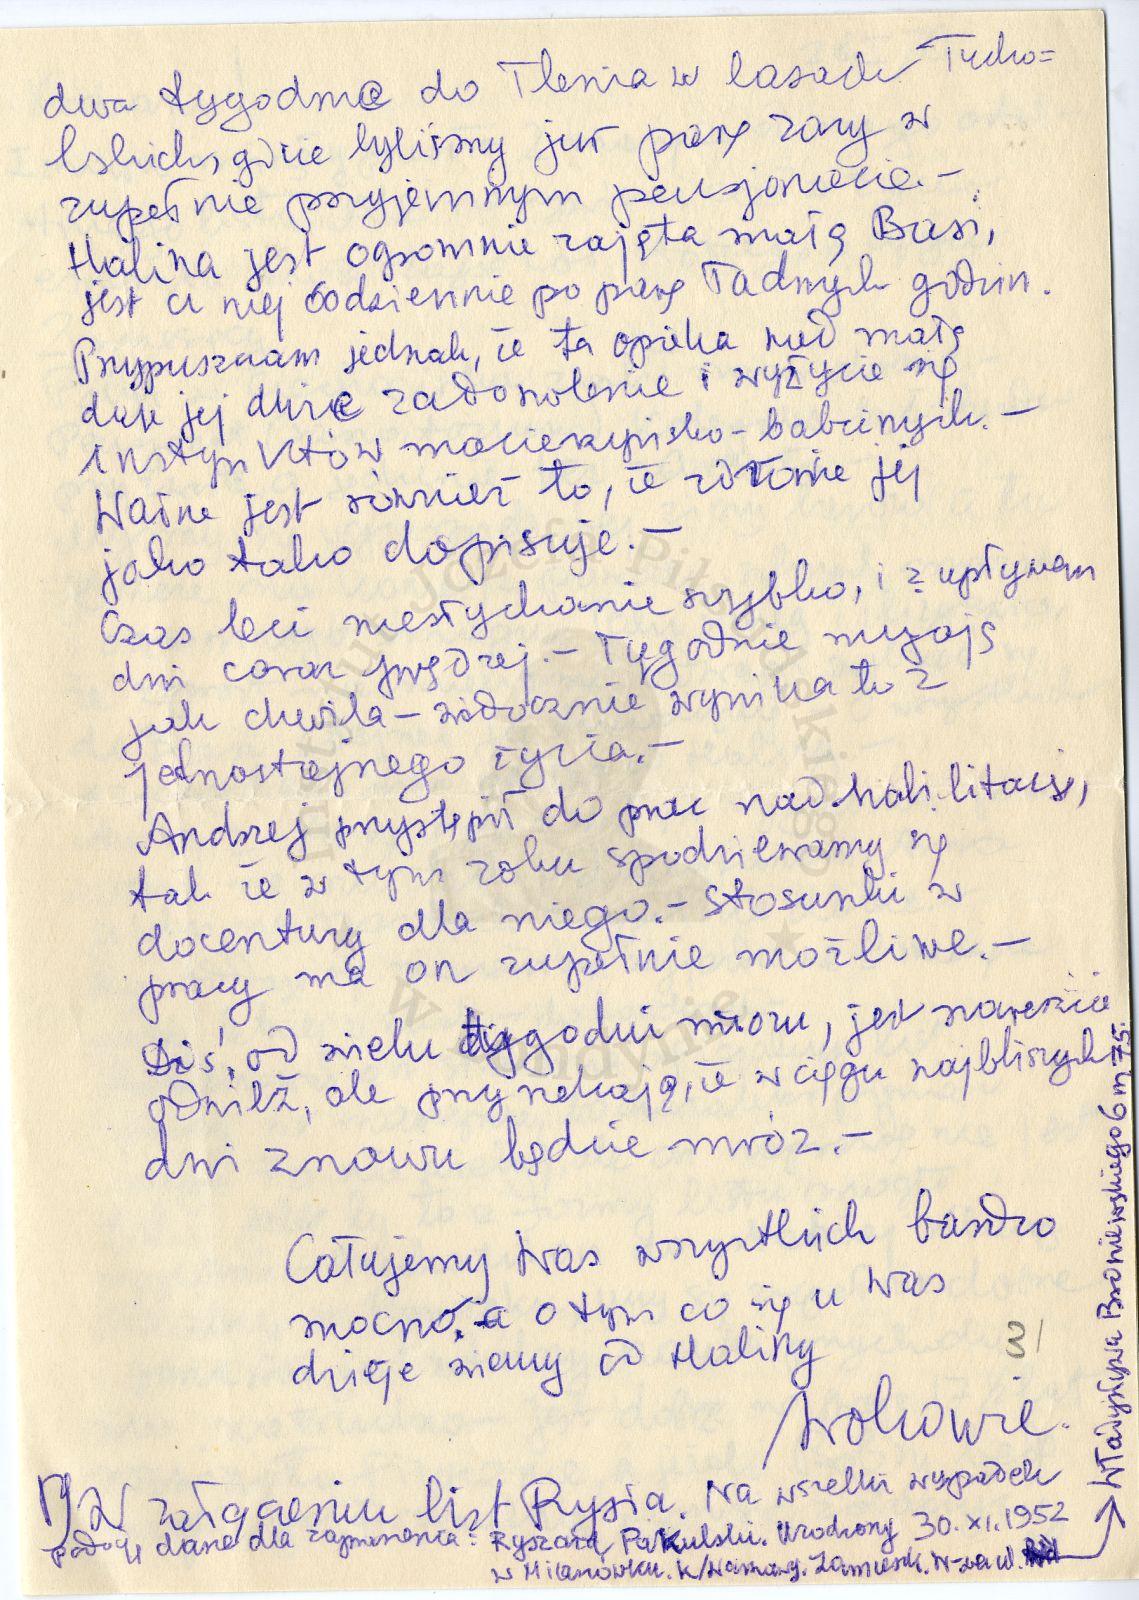 dwa tygodnie do Tlenia w lasach Tucho=
lskich, gdzie byliśmy już parę razy w
zupełnie przyjemnym pensjonacie.-
Halina jest ogromnie zajęta małą Basi,
jest u niej codziennie po parę ładnych godzin.
Przypuszczam jednak, że ta opieka nad małą
daje jej duże zadowolenie i wyżycie się
instynktów macierzyńsko-babcinych.-
Ważne jest również to, że zdrowie jej
jako tako dopisuje.-
Czas leci niesłychanie szybko, i z upływem
dni coraz prędzej.- Tygodnie mijają
jak chwila - widocznie wynika to z
jednostajnego życia.-
Andrzej przystąpił do prac nad habilitacją,
tak że w tym roku spodziewamy się
docentury dla niego.- Stosunki w
pracy ma on zupełnie możliwe.-
Dziś, od wielu tygodni mrozu, jest nareszcie
odwilż, ale przyrzekają, że w ciągu najbliższych
dni znowu będzie mróz.-
Całujemy Was wszystkich bardzo
mocno, a o tym co się u Was
dzieje wiemy od Haliny
31
W załączeniu list Rysia. Na wszelki wypadek
podaję dane dla zapewnienia: Ryszard Pakulski. Urodzony 30.XI.1952
w Milanówku. k/Warszawy. Zamieszk. W-wa ul.
Władysława Broniewskiego 6 m. 75.
Instytut Józefa Piłsudskiego
w Gdyni